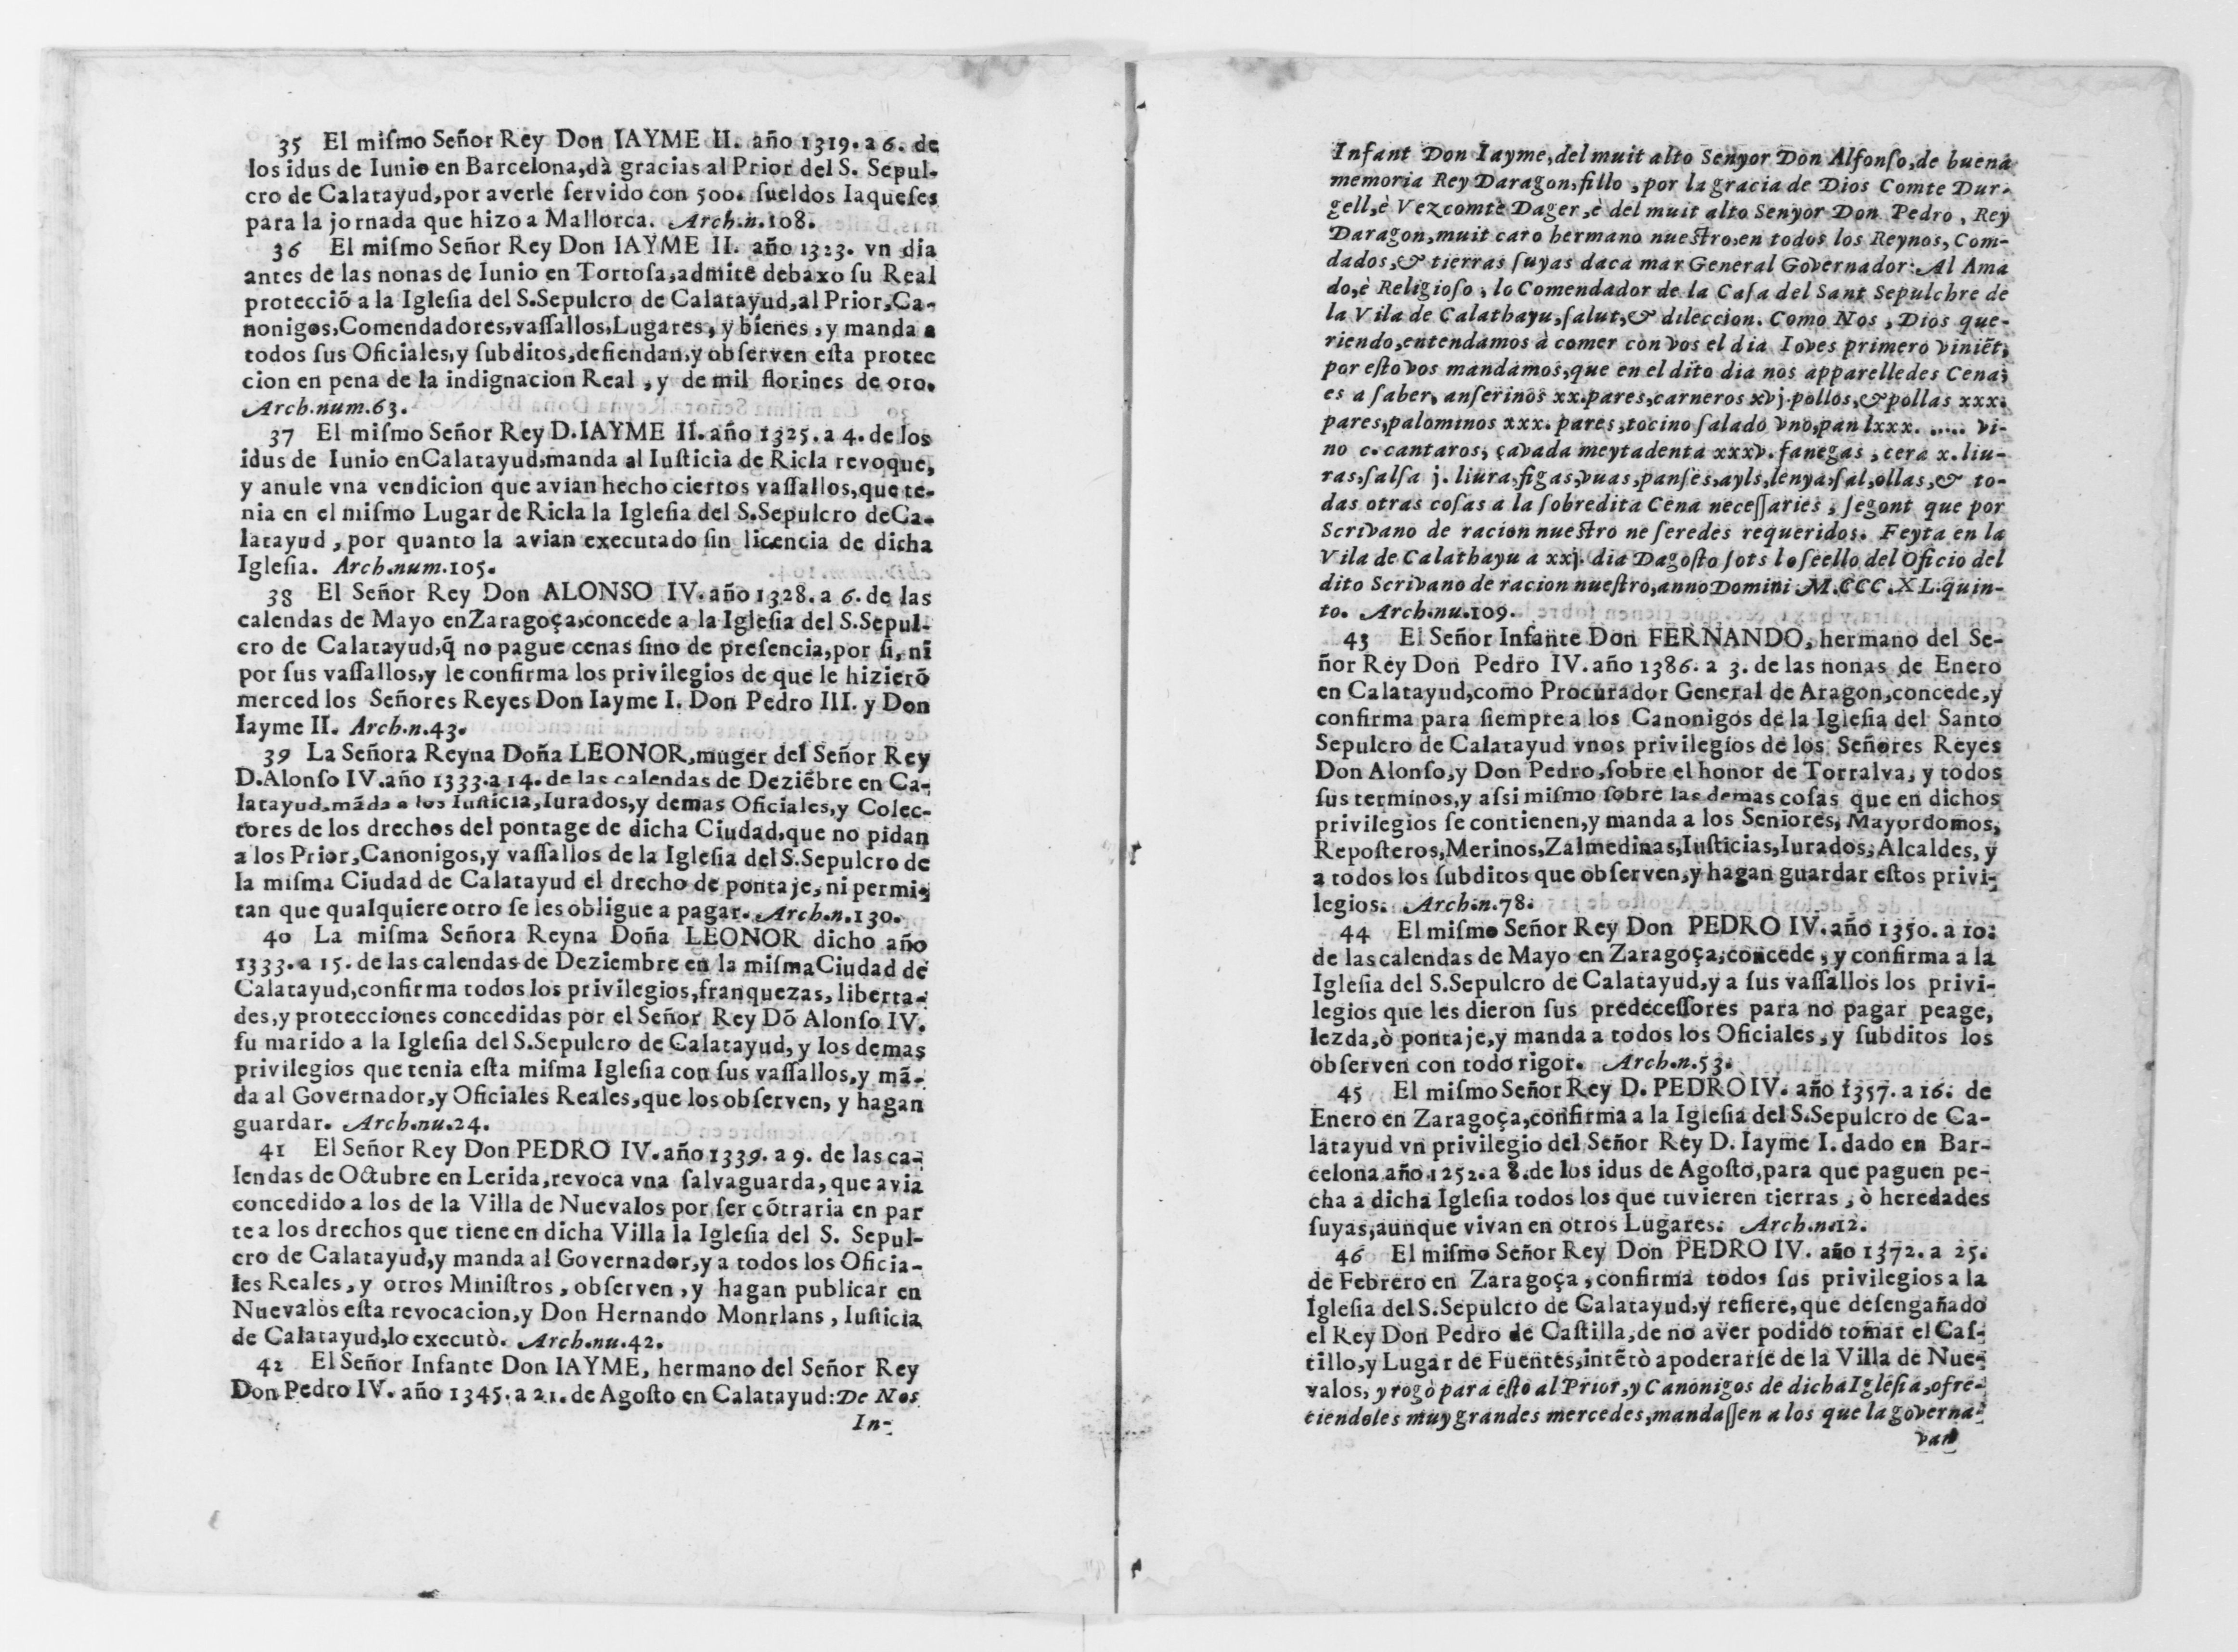 35 El miſmo Señor Rey Don IAYME II. año 1319. a 6. de
los idus de Iunio en Barcelona, dà gracias al Prior del S. Sepul-
cro de Calatayud, por averle ſervido con 500. ſueldos Iaqueſes
para la jornada que hizo a Mallorca. Arch. n. 108.
36 El miſmo Señor Rey Don IAYME II. año 1323. vn dia
antes de las nonas de Iunio en Tortoſa, admite debaxo ſu Real
protecciõ a la Igleſia del S. Sepulcro de Calatayud, al Prior, Ca-
nonigos, Comendadores, vaſſallos, Lugares, y bienes, y manda a
todos ſus Oficiales, y ſubditos, defiendan, y obſerven eſta protec
cion en pena de la indignacion Real, y de mil florines de oro.
Arch. num. 63.
37 El miſmo Señor Rey D. IAYME II. año 1325. a 4. de los
idus de Iunio en Calatayud, manda al Iuſticia de Ricla revoque,
y anule vna vendicion que avian hecho ciertos vaſſallos, que te-
nia en el miſmo Lugar de Ricla la Igleſia del S. Sepulcro de Ca-
latayud, por quanto la avian executado ſin licencia de dicha
Igleſia. Arch. num. 105.
38 El Señor Rey Don ALONSO IV. año 1328. a 6. de las
calendas de Mayo en Zaragoça, concede a la Igleſia del S. Sepul-
cro de Calatayud, q̃ no pague cenas ſino de preſencia, por ſi, ni
por ſus vaſſallos, y le confirma los privilegios de que le hizierõ
merced los Señores Reyes Don Iayme I. Don Pedro III. y Don
Iayme II. Arch. n. 43.
39 La Señora Reyna Doña LEONOR, muger del Señor Rey
D. Alonſo IV. año 1333. a 14. de las calendas de Deziẽbre en Ca-
latayud, mãda a los Iuſticia, Iurados, y demas Oficiales, y Colec-
tores de los drechos del pontage de dicha Ciudad, que no pidan
a los Prior, Canonigos, y vaſſallos de la Igleſia del S. Sepulcro de
la miſma Ciudad de Calatayud el drecho de pontaje, ni permi-
tan que qualquiere otro ſe les obligue a pagar. Arch. n. 130.
40 La miſma Señora Reyna Doña LEONOR dicho año
1333. a 15. de las calendas de Deziembre en la miſma Ciudad de
Calatayud, confirma todos los privilegios, franquezas, liberta-
des, y protecciones concedidas por el Señor Rey Dõ Alonſo IV.
ſu marido a la Igleſia del S. Sepulcro de Calatayud, y los demas
privilegios que tenia eſta miſma Igleſia con ſus vaſſallos, y mã-
da al Governador, y Oficiales Reales, que los obſerven, y hagan
guardar. Arch. nu. 24.
41 El Señor Rey Don PEDRO IV. año 1339. a 9. de las ca-
lendas de Octubre en Lerida, revoca vna ſalvaguarda, que avia
concedido a los de la Villa de Nuevalos por ſer cõtraria en par
te a los drechos que tiene en dicha Villa la Igleſia del S. Sepul-
cro de Calatayud, y manda al Governador, y a todos los Oficia-
les Reales, y otros Miniſtros, obſerven, y hagan publicar en
Nuevalos eſta revocacion, y Don Hernando Monrlans, Iuſticia
de Calatayud, lo executò. Arch. nu. 42.
42 El Señor Infante Don IAYME, hermano del Señor Rey
Don Pedro IV. año 1345. a 21. de Agoſto en Calatayud: De Nos
In-
Infant Don Iayme, del muit alto Senyor Don Alfonſo, de buena
memoria Rey Daragon, fillo, por la gracia de Dios Comte Dur-
gell, è Vezcomte Dager, è del muit alto Senyor Don Pedro, Rey
Daragon, muit caro hermano nueſtro, en todos los Reynos, Com-
dados, & tierras ſuyas daca mar General Governador: Al Ama
do, è Religioſo, lo Comendador de la Caſa del Sant Sepulchre de
la Vila de Calathayu, ſalut, & dileccion. Como Nos, Dios que-
riendo, entendamos à comer con vos el dia Ioves primero viniẽt,
por eſto vos mandamos, que en el dito dia nos apparelledes Cena,
es a ſaber, anſerinos xx. pares, carneros xvj. pollos, & pollas xxx.
pares, palominos xxx. pares, tocino ſalado vno, pan lxxx. ..... vi-
no c. cantaros, çavada meytadenta xxxv. fanegas, cera x. liu-
ras, ſalſa j. liura, figas, vuas, panſes, ayls, lenya, ſal, ollas, & to-
das otras coſas a la ſobredita Cena neceſſaries, ſegont que por
Scrivano de racion nueſtro ne ſeredes requeridos. Feyta en la
Vila de Calathayu a xxj. dia Dagoſto ſots lo ſeello del Oficio del
dito Scrivano de racion nueſtro, anno Domini M.CCC.XL.quin-
to. Arch. nu. 109.
43 El Señor Infante Don FERNANDO, hermano del Se-
ñor Rey Don Pedro IV. año 1386. a 3. de las nonas de Enero
en Calatayud, como Procurador General de Aragon, concede, y
confirma para ſiempre a los Canonigos de la Igleſia del Santo
Sepulcro de Calatayud vnos privilegios de los Señores Reyes
Don Alonſo, y Don Pedro, ſobre el honor de Torralva, y todos
ſus terminos, y aſsi miſmo ſobre las demas coſas que en dichos
privilegios ſe contienen, y manda a los Seniores, Mayordomos,
Repoſteros, Merinos, Zalmedinas, Iuſticias, Iurados, Alcaldes, y
a todos los ſubditos que obſerven, y hagan guardar eſtos privi-
legios. Arch. n. 78.
44 El miſmo Señor Rey Don PEDRO IV. año 1350. a 10.
de las calendas de Mayo en Zaragoça, concede, y confirma a la
Igleſia del S. Sepulcro de Calatayud, y a ſus vaſſallos los privi-
legios que les dieron ſus predeceſſores para no pagar peage,
lezda, ò pontaje, y manda a todos los Oficiales, y ſubditos los
obſerven con todo rigor. Arch. n. 53.
45 El miſmo Señor Rey D. PEDRO IV. año 1357. a 16. de
Enero en Zaragoça, confirma a la Igleſia del S. Sepulcro de Ca-
latayud vn privilegio del Señor Rey D. Iayme I. dado en Bar-
celona año 1252. a 8. de los idus de Agoſto, para que paguen pe-
cha a dicha Igleſia todos los que tuvieren tierras, ò heredades
ſuyas, aunque vivan en otros Lugares. Arch. n. 12.
46 El miſmo Señor Rey Don PEDRO IV. año 1372. a 25.
de Febrero en Zaragoça, confirma todos ſus privilegios a la
Igleſia del S. Sepulcro de Calatayud, y refiere, que deſengañado
el Rey Don Pedro de Caſtilla, de no aver podido tomar el Caſ-
tillo, y Lugar de Fuentes, intẽtò apoderarſe de la Villa de Nue-
valos, y rogò para eſto al Prior, y Canonigos de dicha Igleſia, ofre-
ciendoles muy grandes mercedes, mandaſſen a los que la governa-
van